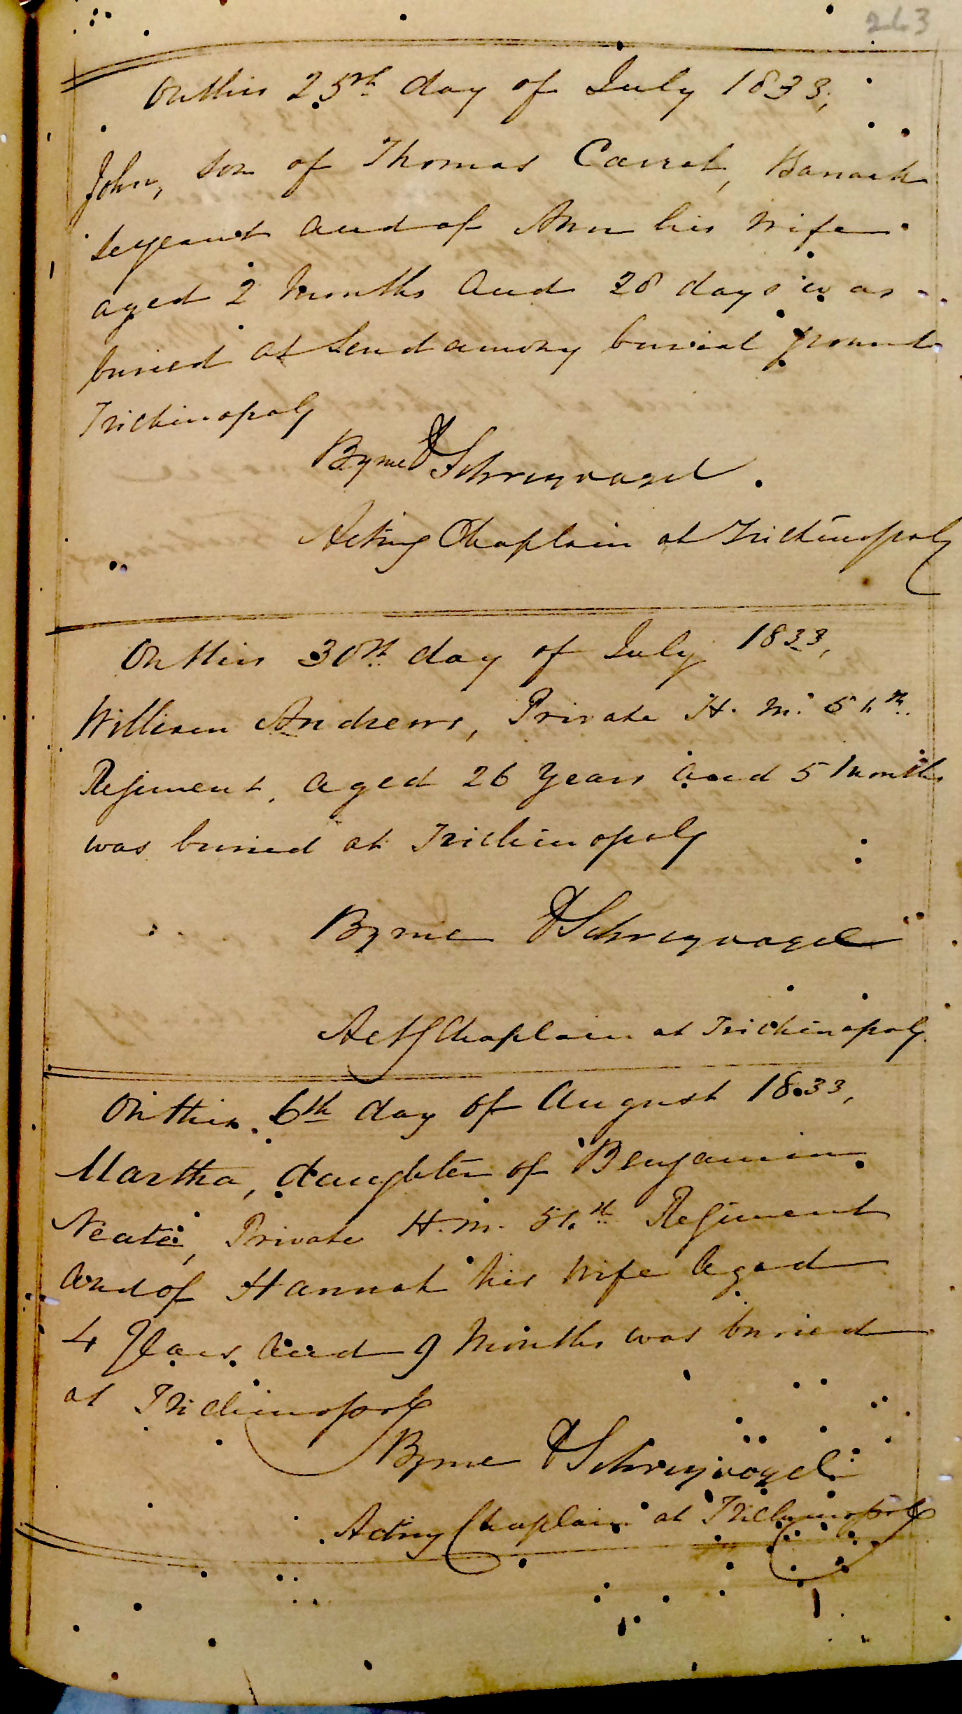 263
On this 25th day of July 1833,
John, son of Thomas Carrol, Barrack
Sergeant and of Ann his wife
aged 2 Months and 28 days was
buried at burial ground
Trichinopoly
By me D Schreyvogel.
Acting Chaplain at Trichinopoly
On this 30th day of July 1833,
William Andrews, Private H. M. 54th
Regiment, aged 26 Years and 5 Months
was buried at Trichinopoly
By me D Schreyvogel
Actg Chaplain at Trichinopoly
On this 6th day of August 1833,
Martha, daughter of Benjamin
Neate, Private H. M. 54th Regiment
and of Hannah his Wife aged
4 Years and 9 Months was buried
at Trichinopoly
By me D Schreyvogel
Acting Chaplain at Trichinopoly